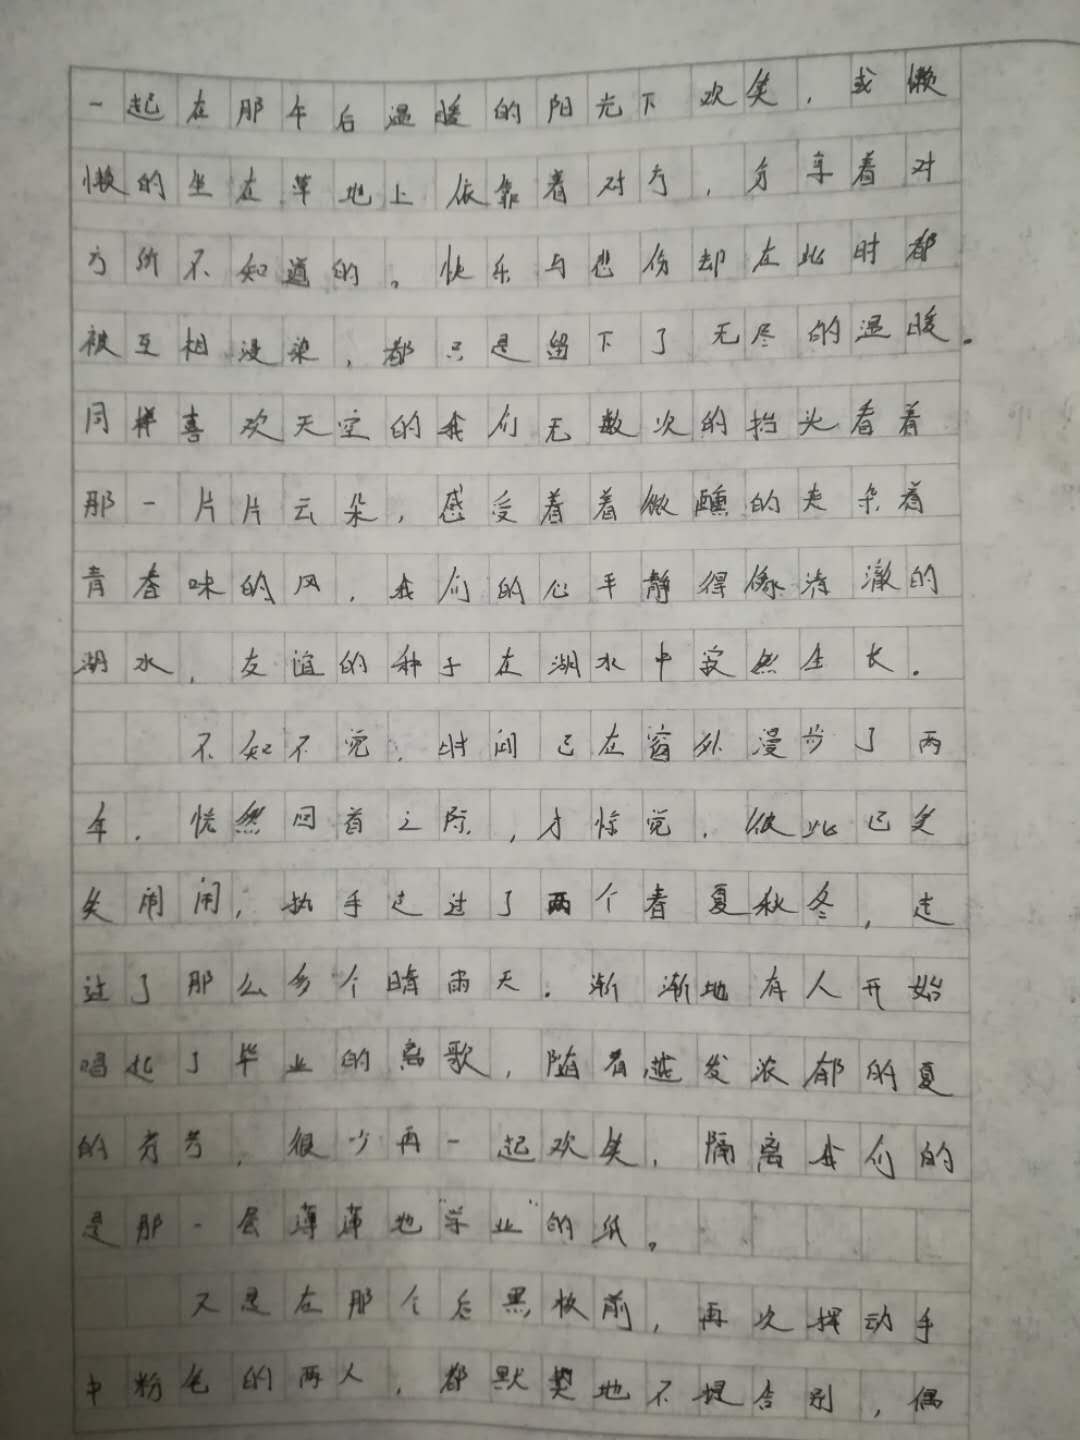 一起在那午后温暖的阳光下欢笑，或懒
懒的坐在草地上依靠着对方，分享着对
方所不知道的。快乐与悲伤却在此时都
被互相浸染，都只是留下了无尽的温暖。
同样喜欢天空的我们无数次的抬头看着
那一片片云朵，感受着着微醺的夹杂着
青春味的风，我们的心平静得像清澈的
湖水，友谊的种子在湖水中寂然生长。
不知不觉，时间已在窗外漫步了两
年，恍然回首之际，才惊觉，彼此已笑
笑闹闹，执手走过了两个春夏秋冬，走
过了那么多个晴雨天。渐渐地有人开始
唱起了毕业的离歌，随着越发浓郁的夏
的芬芳，很少再一起欢笑，隔离我们的
是那一层薄薄地"学业"的纸。
又是在那个后黑板前，再次挥动手
中粉笔的两人，都默契地不提告别，偶